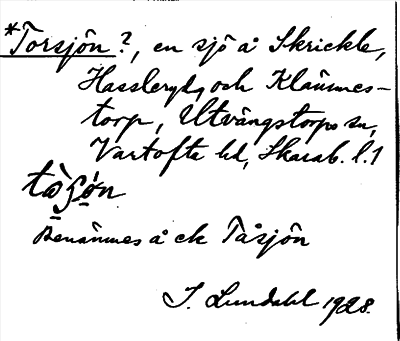 *Torsjön?, en sjö å Skrickle,
Hassleryd, och Klämmes-
torp, Utvängstorps sn,
Vartofta hd, Skarab. l. 1
Benämnes å ek Tåsjön
J. Lundahl 1928.